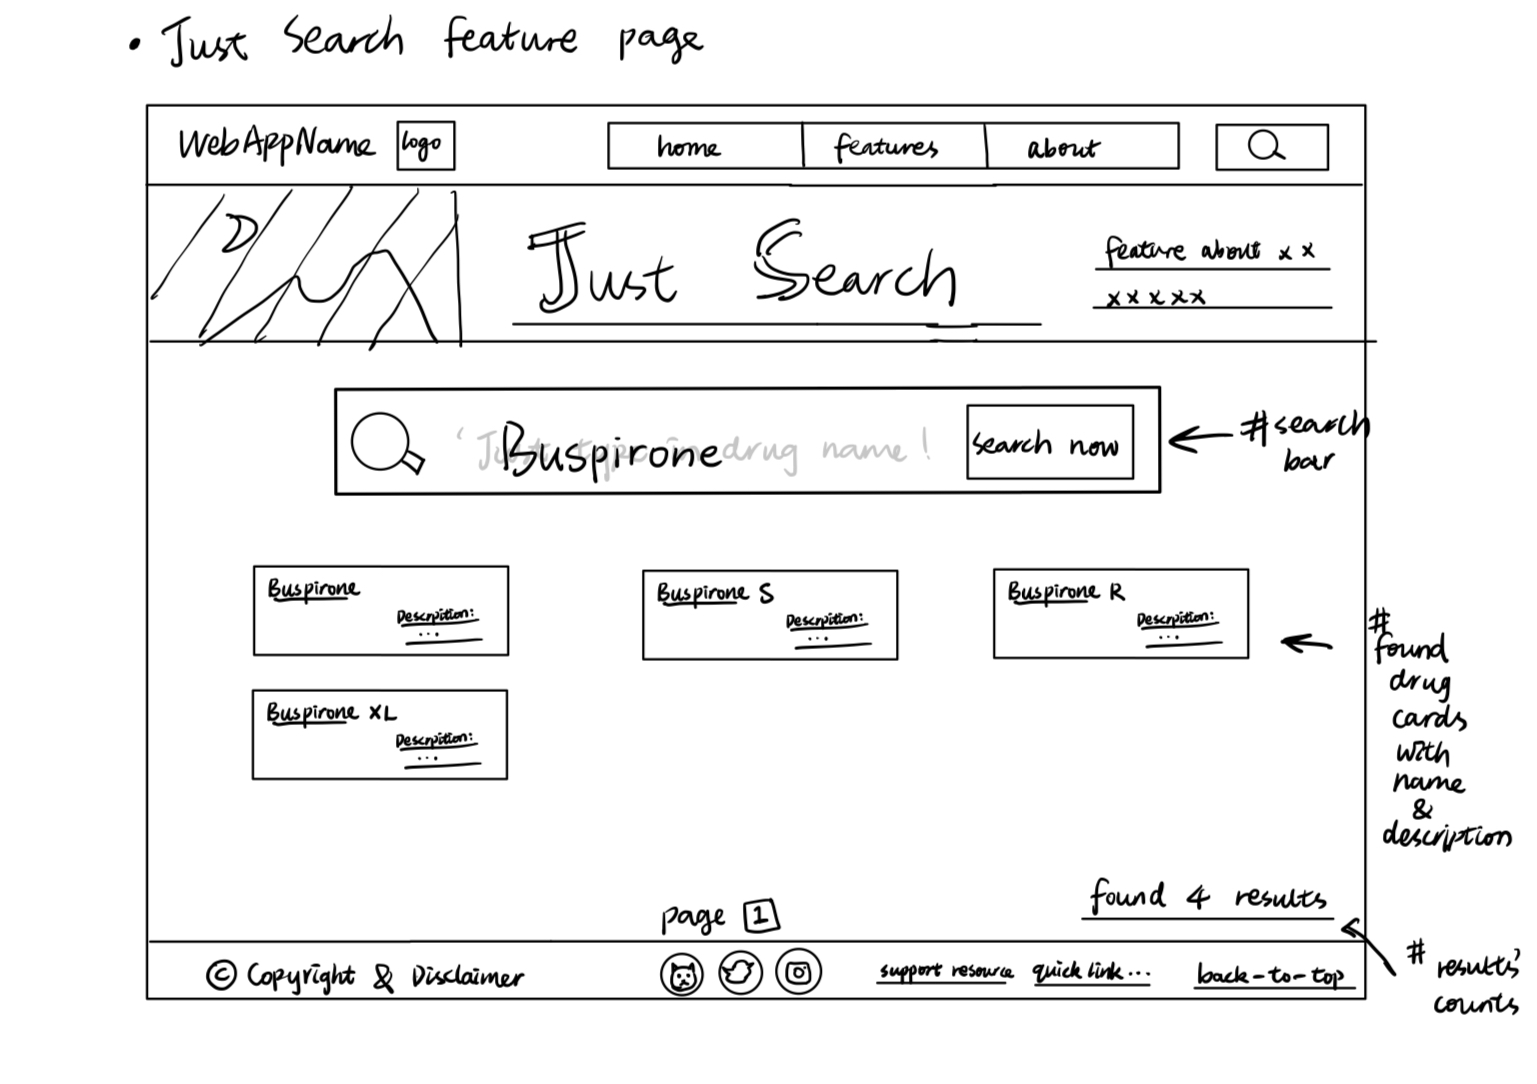 • Just Search feature page
WebAppName logo home features about
Just Search
feature about x x
x x x x x
' Just type in drug name !
Buspirone
search now
# search
bar
Buspirone
Descrpition:
...
Buspirone S
Descrpition:
...
Buspirone R
Descrpition:
...
Buspirone XL
Descrpition:
...
#
found
drug
cards
with
name
&
description
found 4 results
page 1
# results'
counts
© Copyright & Disclaimer support resource quick link... back-to-top